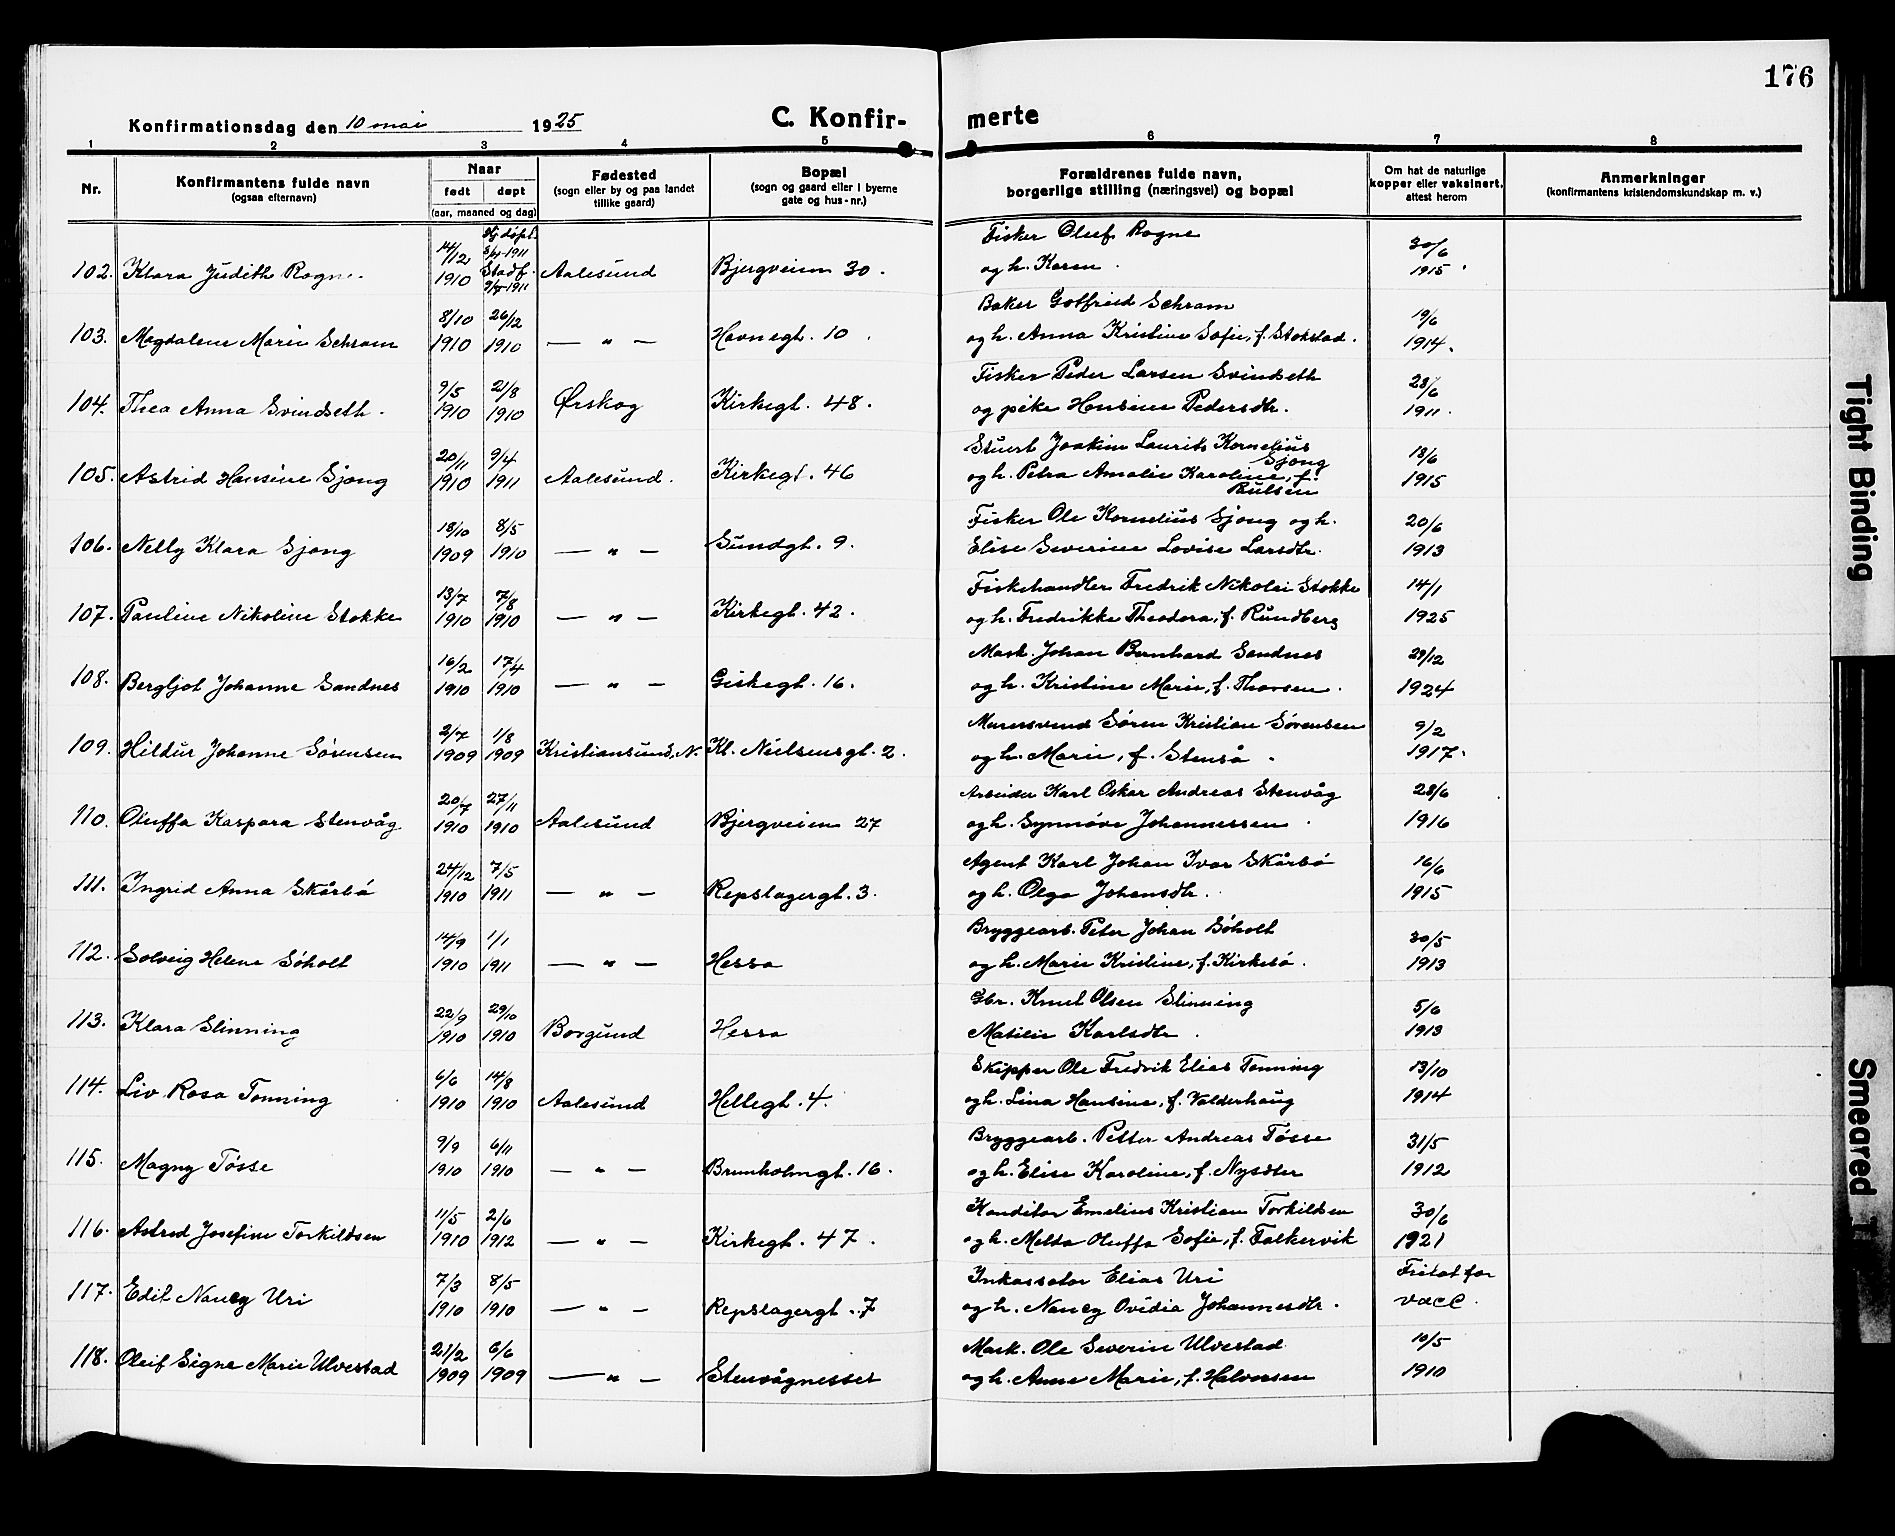 176
Konfirmationsdag den 10 mai 1925
C. Konfir-
merte
1 2 3 4 5 6 7 8
Nr.
Konfirmantens fulde navn
(ogsaa efternavn)
Naar
født døpt
(aar, maaned og dag)
Fødested
(sogn eller by og paa landet
tillike gaard)
Bopæl
(sogn og gaard eller i byerne
gate og hus-nr.)
Forældrenes fulde navn,
borgerlige stilling (næringsvei) og bopæl
Om hat de naturlige
kopper eller vaksinert.
attest herom
Anmerkninger
(konfirmantens kristendomskundskap m. v.)
Hj.døpt. Fisker Oluf Rogne
14/12 30/6
102. Klara Judith Rogne. 1910 Stadf. 1911 Aalesund Bjergveien 30. og h. Karen. 1915
8/10 26/12 Baker Gotfried Schram 19/6
103. Magdalene Marie Schram 1910 1910 — " — Havnegt. 10. og h. Anna Kristine Sofie, f. Stokstad. 1914.
9/5 21/8 Fisker Peder Larsen Svindseth 28/6
104. Thea Anna Svindseth. 1910 1910 Ørskog Kirkegt. 48. og pike Hansine Pedersdtr. 1911.
20/11 9/4 Stuert Joakim Laurits Kornelius Sjong 18/6
105. Astrid Hansine Sjong 1910 1911 Aalesund. Kirkegt. 46 og h. Petra Amalie Karoline, f. Paulsen 1915
18/10 8/5 Fisker Ole Kornelius Sjong og h. 20/6
106. Nelly Klara Sjong 1909 1910 — " — Sundgt. 9. Elise Severine Lovise Larsdtr. 1913
13/7 7/8 Fiskehandler Fredrik Nikolai Stokke 14/1
107. Pauline Nikoline Stokke 1910 1910 — " — Kirkegt. 42. og h. Fredrikke Theodora, f. Rundberg 1925
16/2 17/4 Mask. Johan Bernhard Sandnes 29/12
108. Bergljot Johanne Sandnes 1910 1910 — " — Giskegt. 16. og h. Kristine Marie, f. Thorsen. 1924
2/7 1/8 Murersvend Søren Kristian Sørensen 9/2
109. Hildur Johanne Sørensen 1909 1909 Kristiansund, N. Kl. Nielsensgt. 2. og h. Marie, f. Stensø. 1917.
20/7 27/11 Arbeider Karl Oskar Andreas Stenvåg 28/6
110. Oluffa Kaspara Stenvåg 1910 1910 Aalesund Bjergveien 27 og h. Synnøve Johannessen. 1916
24/12 7/5 Agent Karl Johan Ivar Skårbø 16/6
111. Ingrid Anna Skårbø 1910 1911 — " — Repslagergt. 3. og h. Olga Johansdtr. 1915
14/9 1/1 Bryggearb. Peter Johan Søholt 30/5
112. Solveig Helene Søholt 1910 1911 — " — Hessa og h. Marie Kristine, f. Kirkesø. 1913
22/9 29/10 Gbr. Knut Olsen Slinning 5/6
113. Klara Slinning 1910 1910 Borgund Hessa Matilie Karlsdtr. 1913
6/6 14/8 Skipper Ole Fredrik Elias Tonning 13/10
114. Liv Rosa Tonning 1910 1910 Aalesund Hellegt. 4. og h. Lina Hansine, f. Valderhaug 1914
9/9 6/11 Bryggearb. Petter Andreas Tøsse 31/5
115. Magny Tøsse 1910 1910 — " — Brunholmgt. 16. og h. Elise Karoline, f. Nysdter 1912
11/5 2/6 Konditor Emelius Kristian Torkildsen 30/6
116. Astrid Josefine Torkildsen 1910 1912 — " — Kirkegt. 47. og h. Melda Oluffa Sofie, f. Falkervik 1921
7/3 8/5 Inkassator Elias Uri Fritat for
117. Edit Nancy Uri 1910 1910 — " — Repslagergt. 7 og h. Nancy Ovidia Johannesdtr. vacc.
21/2 6/6 Mask. Ole Severin Ulvestad 10/5
118. Oleif Signe Marie Ulvestad 1909 1909 — " — Stenvågnesset og h. Anne Marie, f. Halvorsen 1910
Tight Binding
Smeared